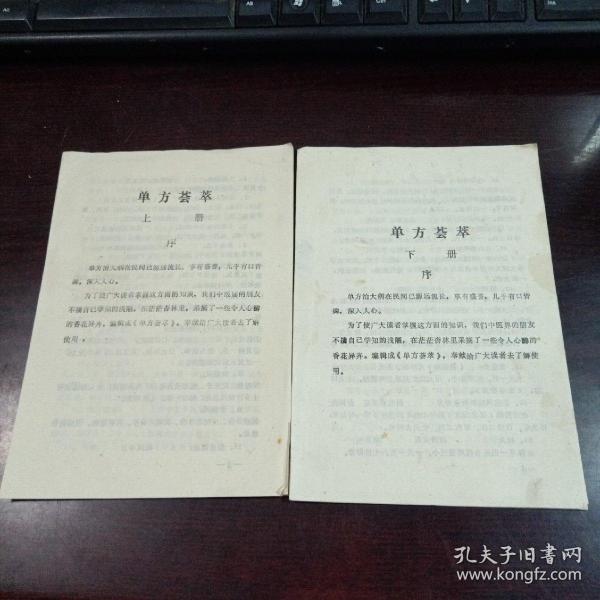 单方荟萃
上 册
序
单方治大病在民间已源远流长，享有盛誉，几乎有口皆
碑，深入人心。
为了使广大读者掌握这方面的知识，我们中医界的朋友
不揣自己学知的浅陋，在茫茫杏林里采撷了一些令人心醉
的香花异卉，编辑成《单方荟萃》，奉献给广大读者去了解
使用。
单方荟萃
下 册
序
单方治大病在民间已源远流长，享有盛誉，几乎有口皆
碑，深入人心。
为了使广大读者掌握这方面的知识，我们中医界的朋友
不揣自己学知的浅陋，在茫茫杏林里采撷了一些令人心醉的
香花异卉，编辑成《单方荟萃》，奉献给广大读者去了解使
用。
孔夫子旧书网
www.kongfz.com